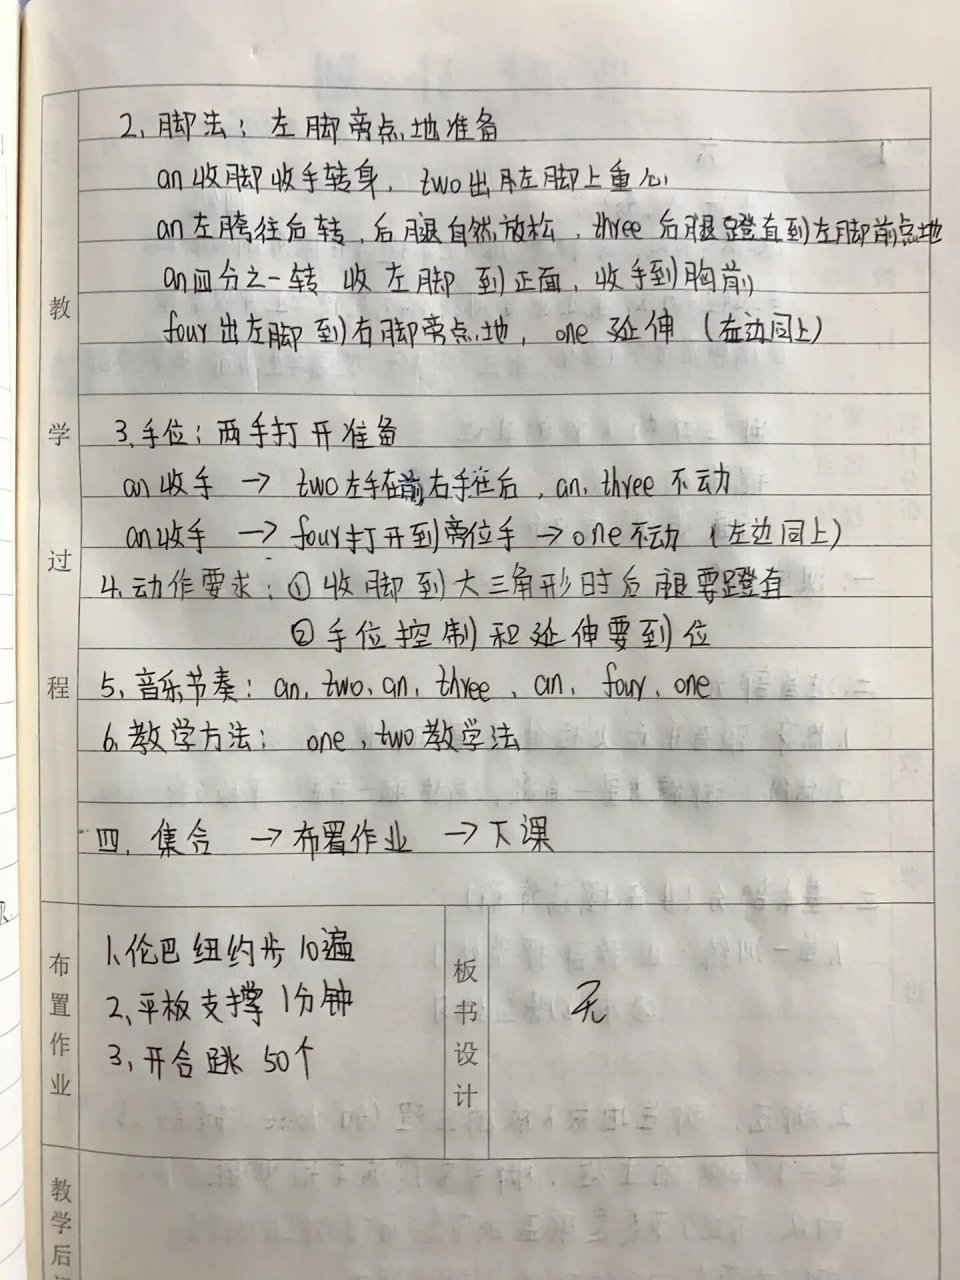 教学过程
2、脚法：左脚旁点地准备
an收脚收手转身，two出左脚上重心
an左胯往后转，后腿自然放松，three后腿蹬直到左脚前点地
an四分之一转 收左脚到正面，收手到胸前
four出左脚到右脚旁点地，one延伸（左边同上）
3、手位：两手打开准备
an收手 → two左手在前右手往后，an、three不动
an收手 → four打开到旁位手 → one不动（左边同上）
4、动作要求：①收脚到大三角形时后腿要蹬直
②手位控制和延伸要到位
5、音乐节奏：an、two、an、three、an、four、one
6、教学方法：one、two教学法
四、集合 → 布置作业 → 下课
布置作业
1、伦巴纽约步10遍
2、平板支撑1分钟
3、开合跳50个
板书设计
无
教学后